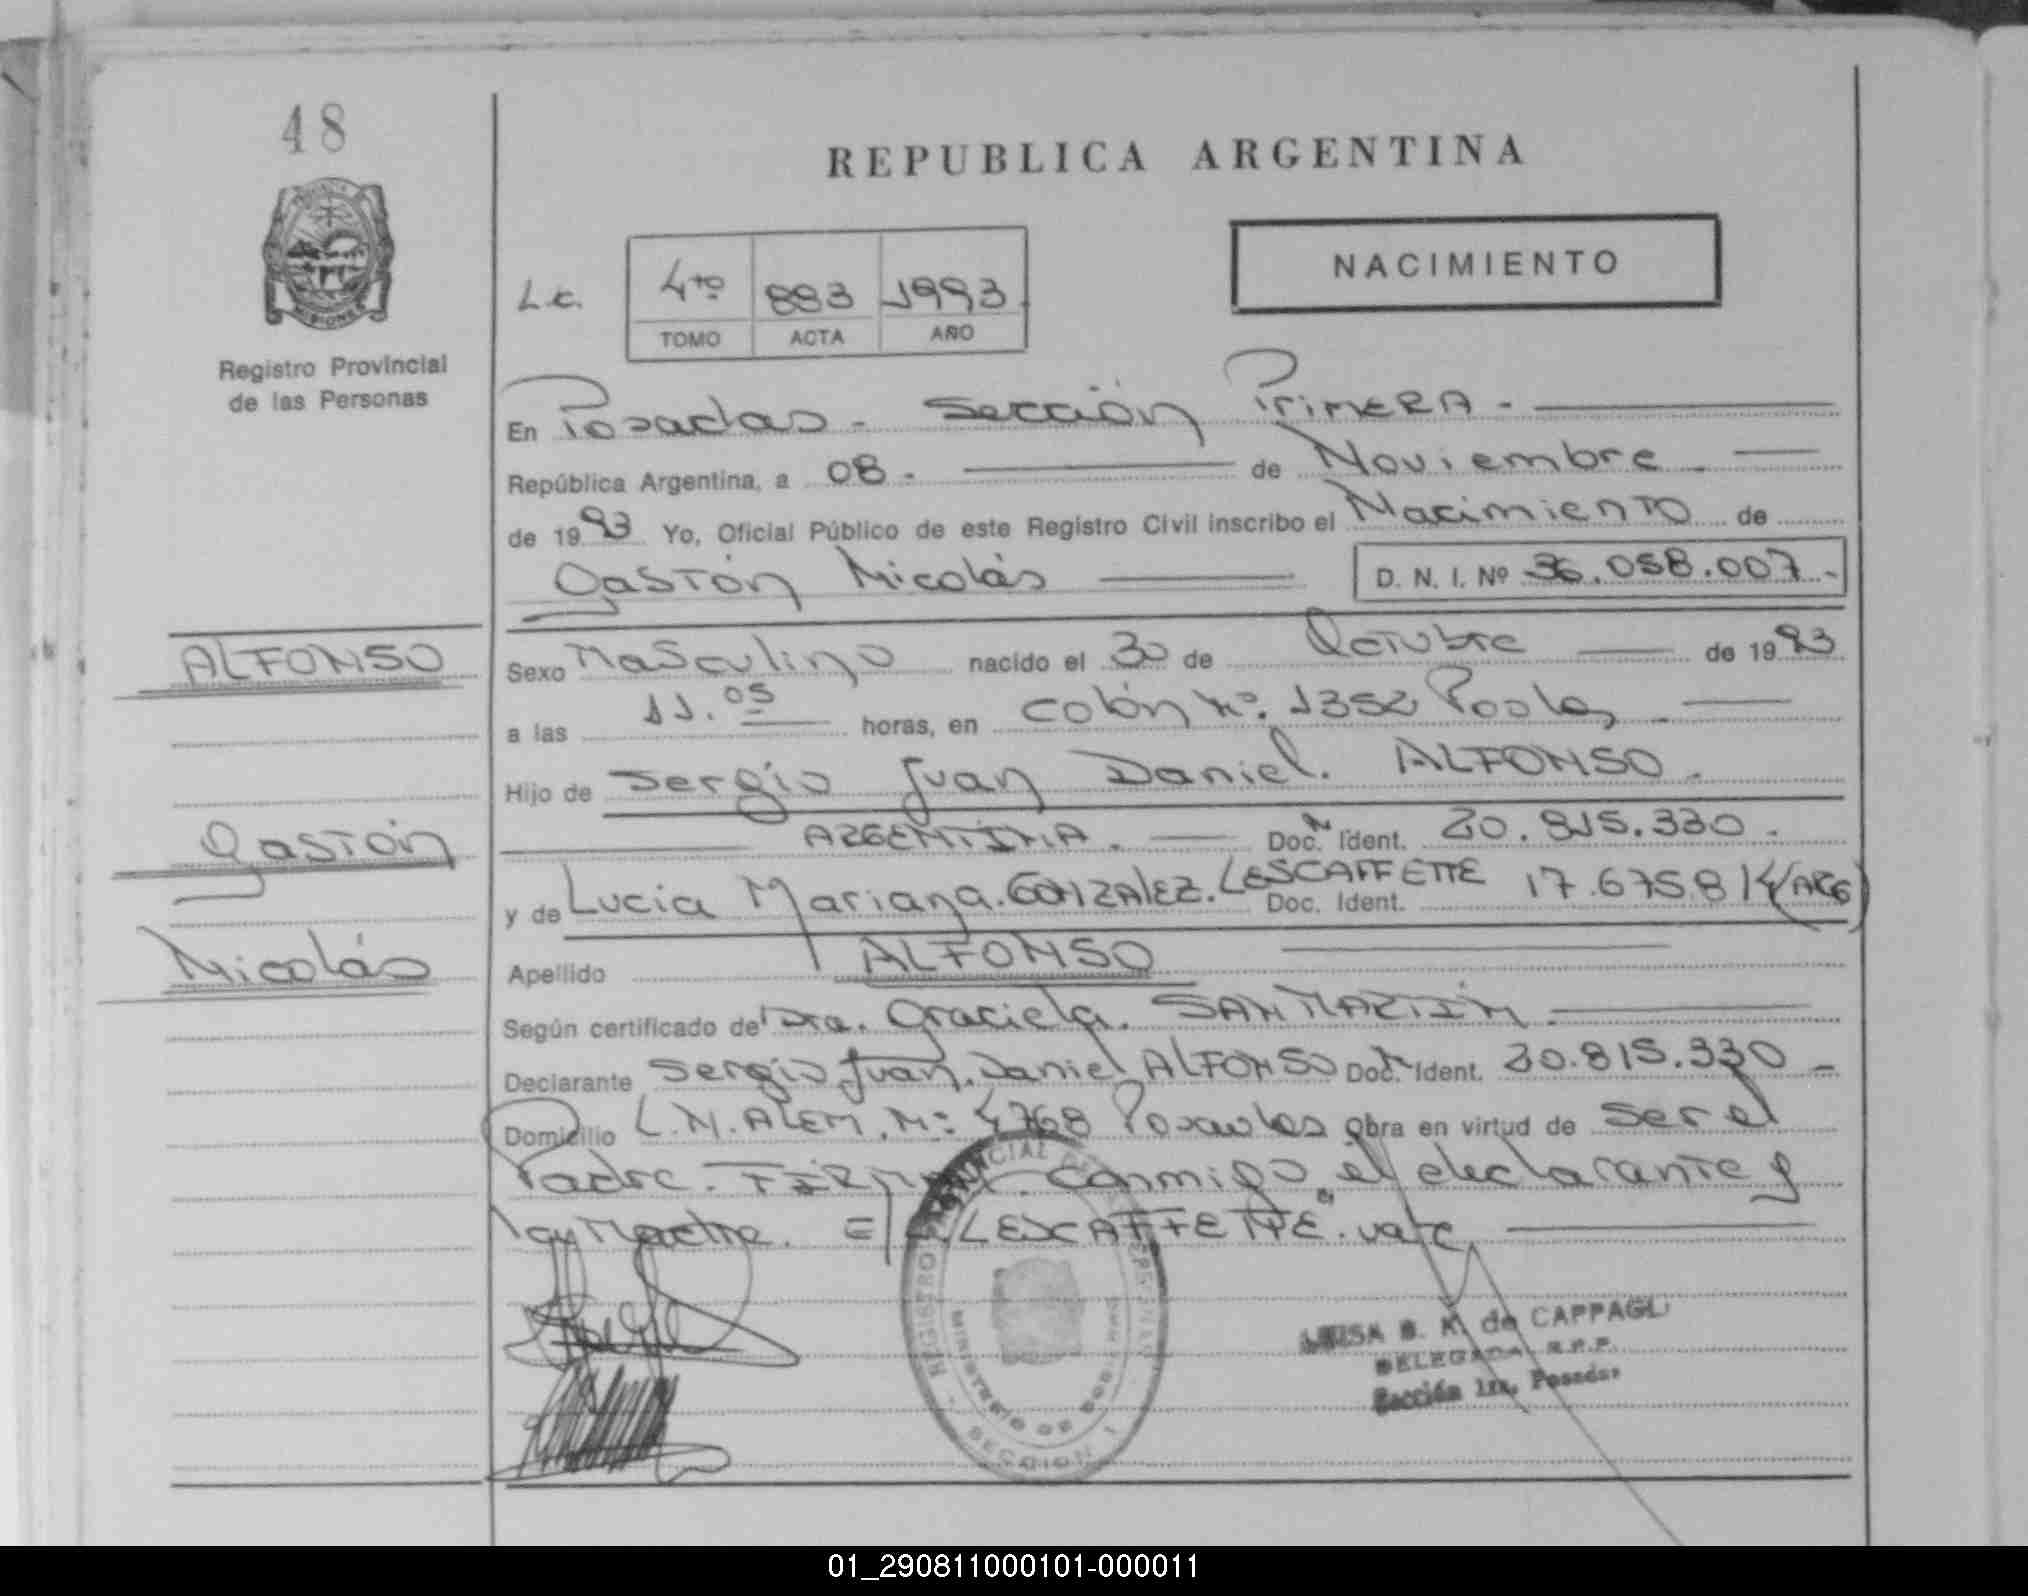 48
REPUBLICA ARGENTINA
NACIMIENTO
L.c. 4to 883 1993
TOMO ACTA AÑO
MISIONES
Registro Provincial
de las Personas
En Posadas - Sección Primera -
República Argentina, a 08 - de Noviembre -
de 1993 Yo, Oficial Público de este Registro Civil inscribo el Nacimiento de
Gastón Nicolás D. N. I. Nº 36.058.007 -
ALFONSO
Sexo Masculino nacido el 30 de Octubre de 1993
a las 11.05 horas, en Colón Nº. 1352 -
Hijo de Sergio Juan Daniel. ALFONSO -
Gastón
ARGENTINA. Doc. Ident. 20.815.330 -
y de Lucia Mariana. GONZALEZ. LESCAFFETTE Doc. Ident. 17.675.814 (ARG)
Nicolás
Apellido ALFONSO
Según certificado de Dra. Graciela. SANMARTIN -
Declarante Sergio Juan, Daniel ALFONSO Doc. Ident. 20.815.330 -
Domicilio L.N. ALEM. Nº 4768 Posadas obra en virtud de ser el
Padre. conmigo el declarante y
la Madre. E/ LESCAFFETTE. vale
REGISTRO PROVINCIAL DE
MINISTERIO DE GOBIERNO
SECCION 1
LUISA B. K. de CAPPAGLI
DELEGADA R.P.P.
Sección 1ra. Posadas
01_290811000101-000011